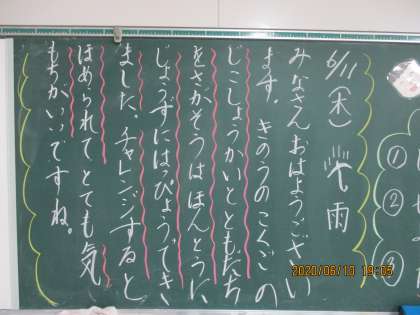 6/11(木) 雨
みなさんおはようござい
ます。きのうのこくごの
じこしょうかいとともだち
をさがそうはほんとうに
じょうずにはっぴょうできき
ました。チャレンジすると
ほめられてとても気
もちがいいですね。
①
②
③
2020/06/10 19:05